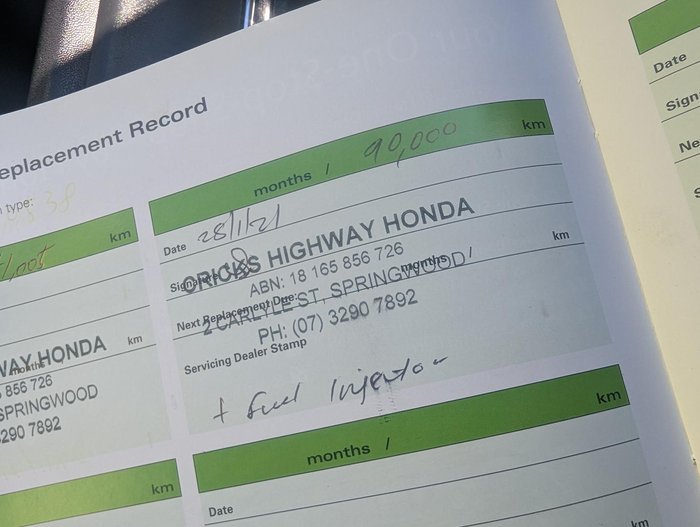 eplacement Record
n type:
km
WAY HONDA
months
km
856 726
SPRINGWOOD
290 7892
km
months / 90,000 km
Date 28/1/21
Signature
CRICKS HIGHWAY HONDA
ABN: 18 165 856 726
Next Replacement Due: months / km
2 CARLYLE ST, SPRINGWOOD
PH: (07) 3290 7892
Servicing Dealer Stamp
+ Fuel Injector
months / km
Date
km
Date
Sign
Ne
S